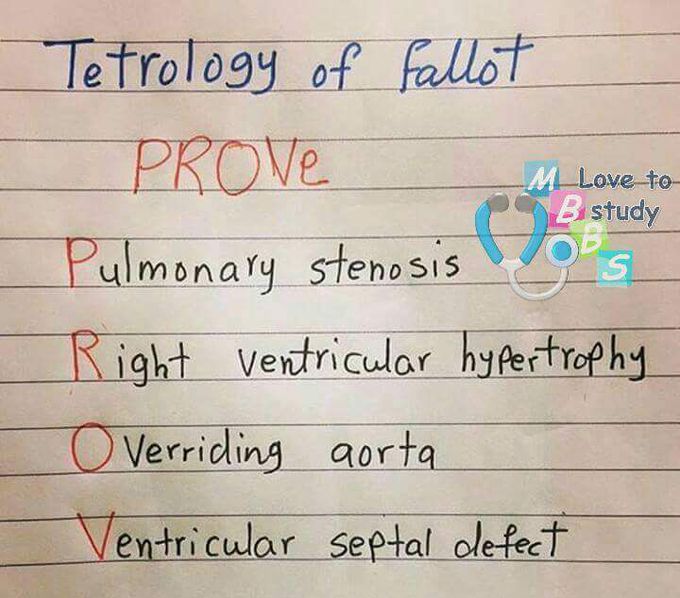 Tetrology of fallot
PROVe
Love to
study
M
B
B
S
Pulmonary stenosis
Right ventricular hypertrophy
Overriding aorta
Ventricular septal defect